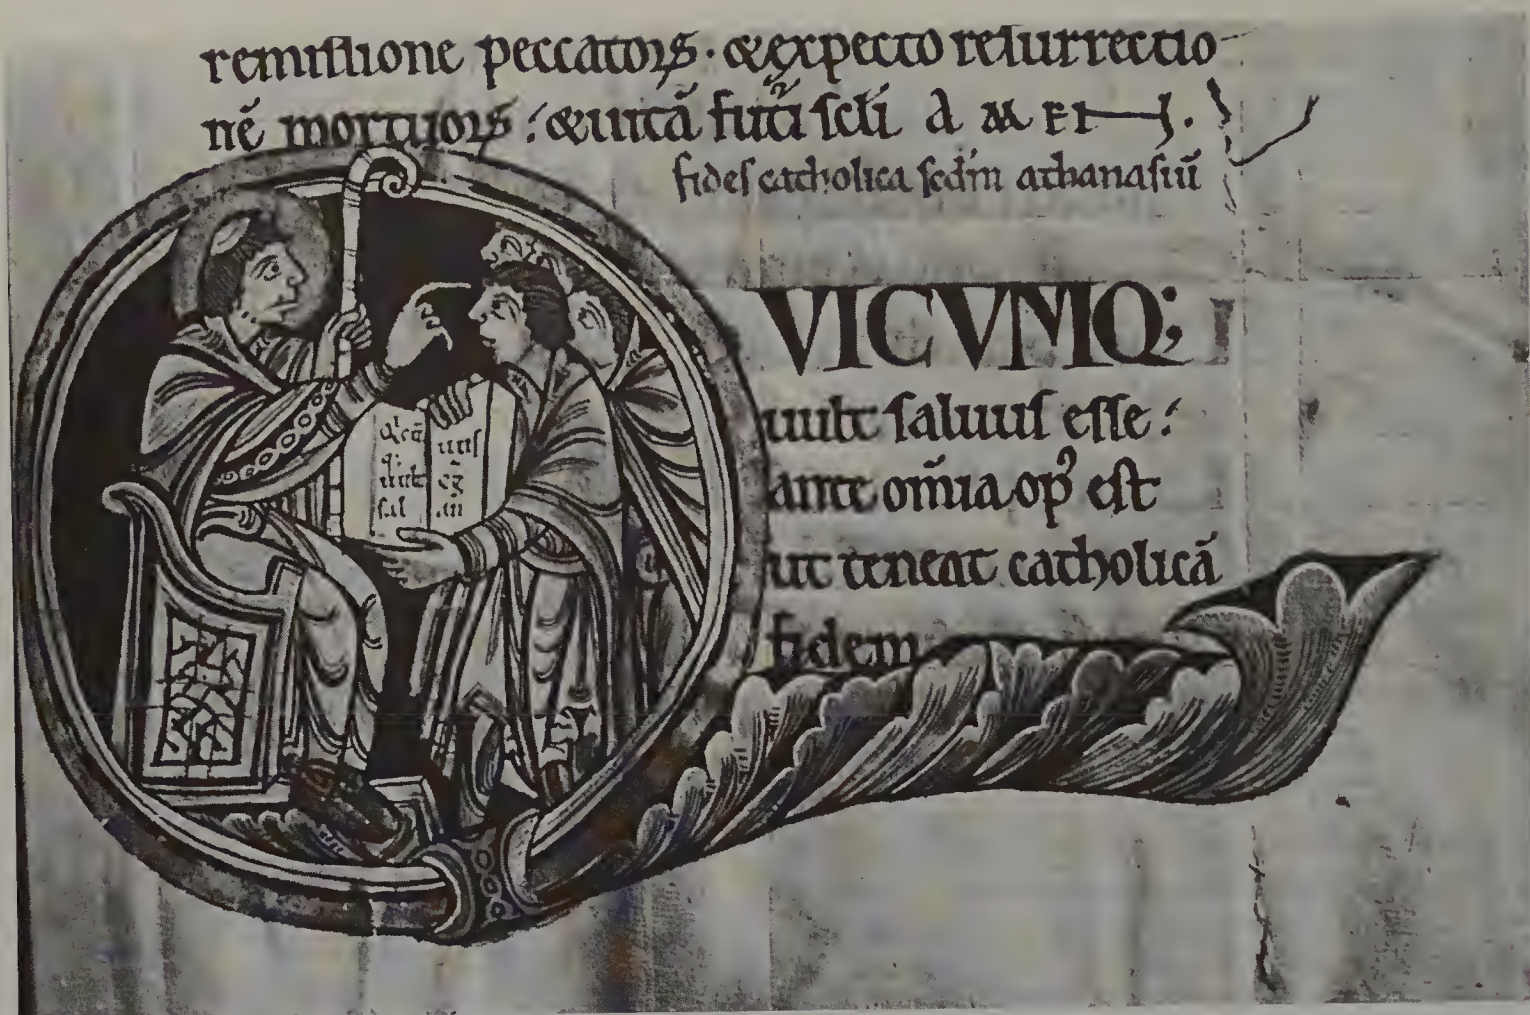 remissione peccatoꝝ · & expecto resurrectio-
nē mortuoꝝ : & uitā futi scli A M E N .
fides catholica scdm athanasiū
VICVMQ;
uult saluus esse :
ante om̄ia op᾽ est
ut teneat catholicā
fidem
uult
sal
uus